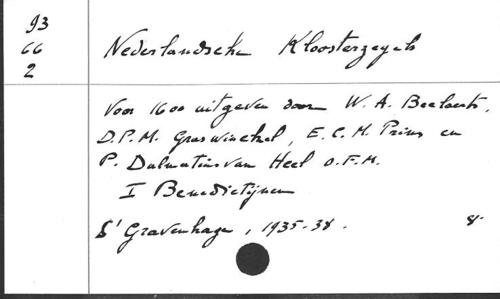 93
66
2
Nederlandsche Kloosterzegels
Voor 1600 uitgeven door W. A. Beelaerts,
D.P.M. Graswinckel, E.C.M. Prins en
P. Dalmatius van Heel O.F.M.
I Benedictijnen
S' Gravenhage, 1935-38.
8-